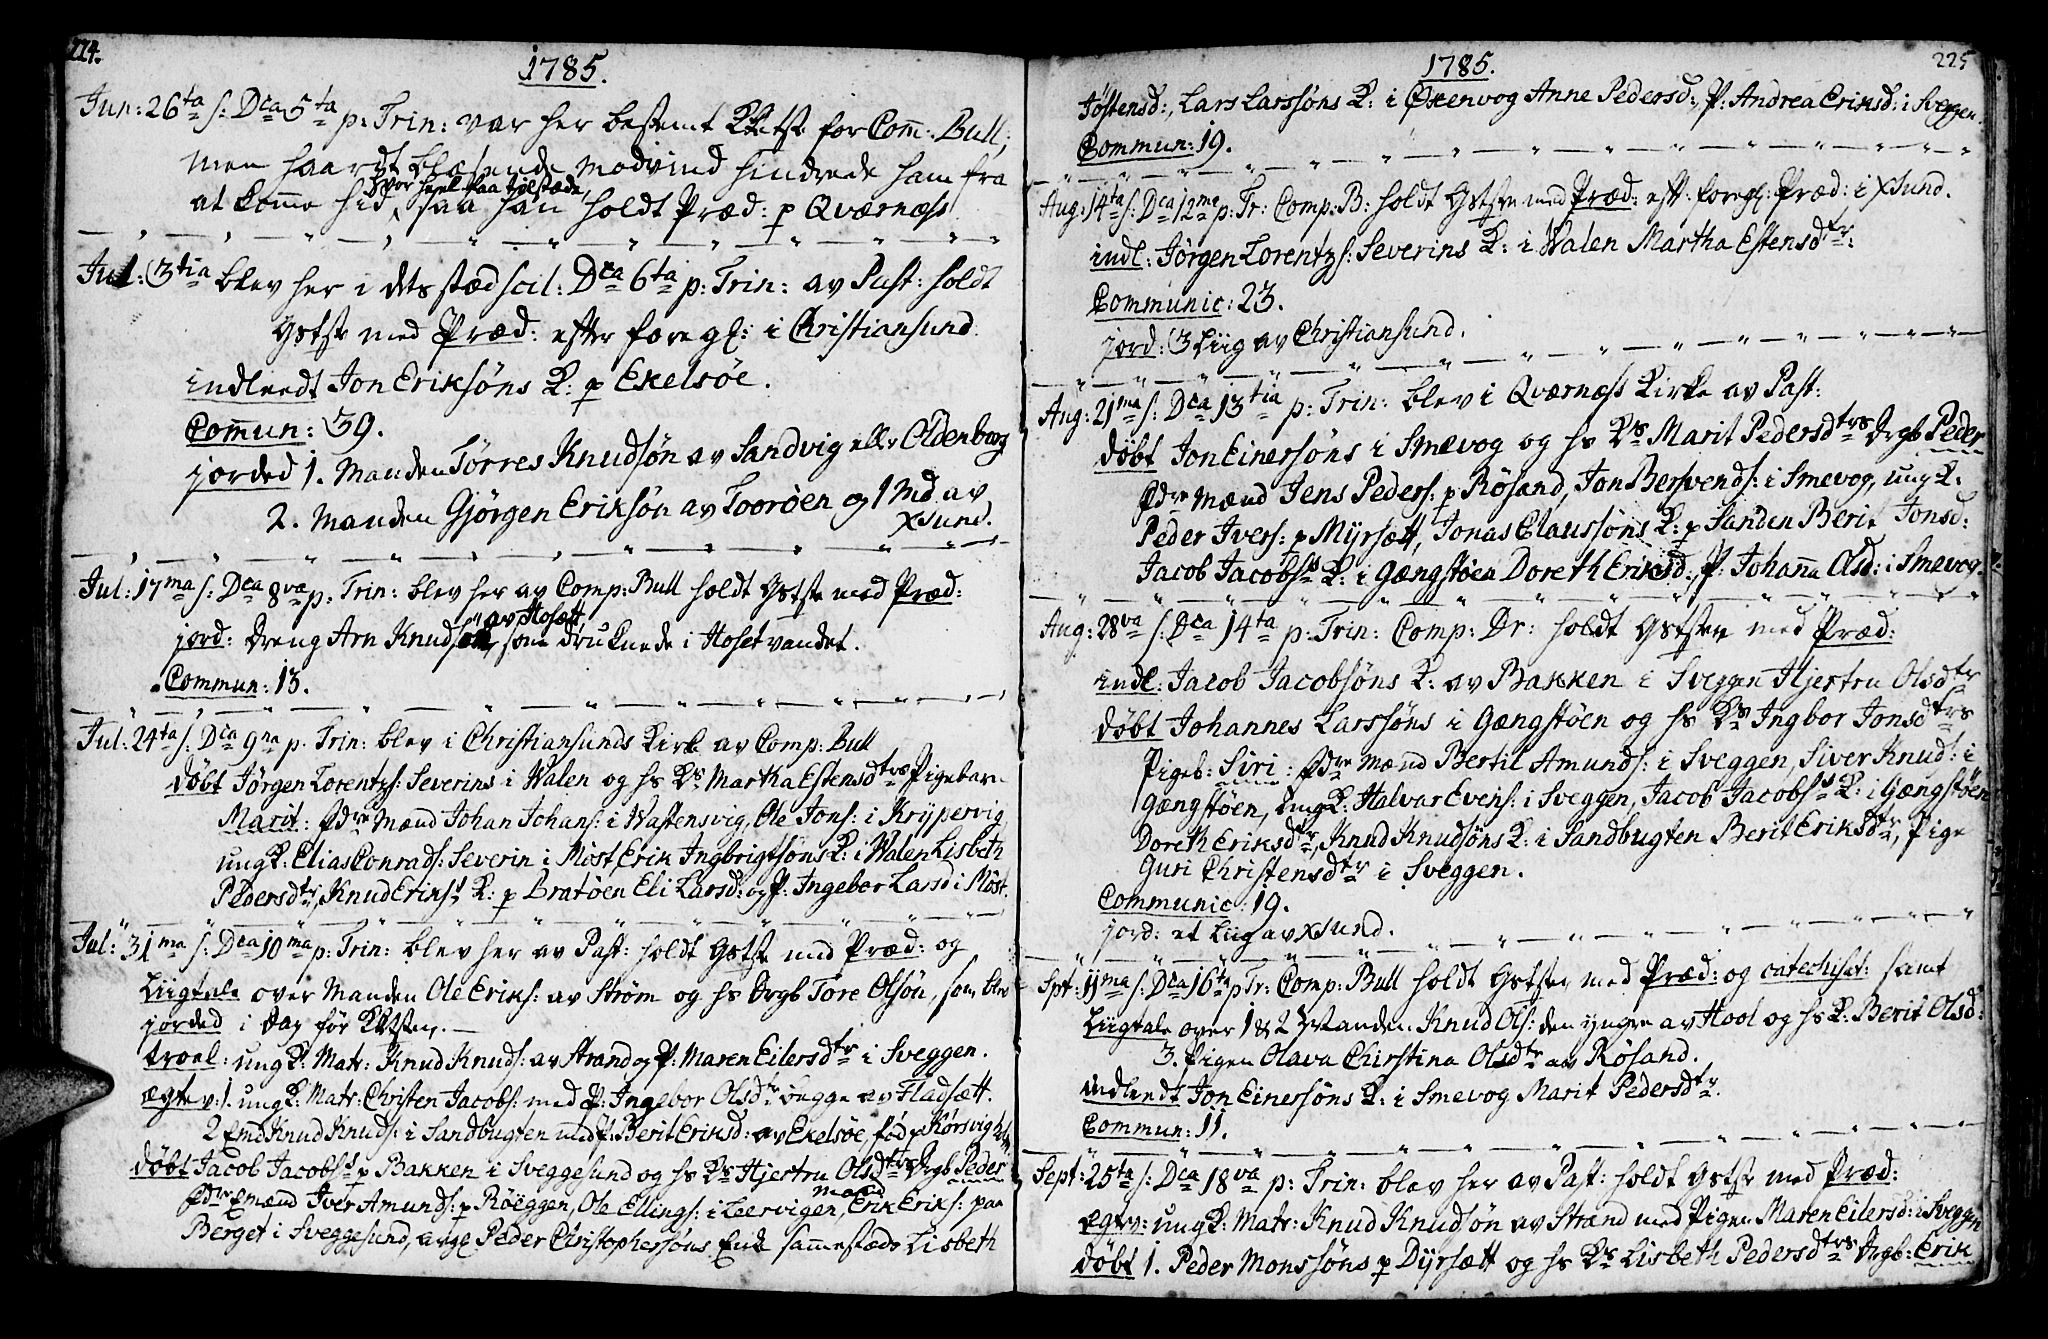 224.
1785.
Jun: 26ta s: Dca 5ta p: Trin: var her bestemt KKtste for Com: Bull;
men haardt blæsende modvind hindrede ham fra
at komme hid, saa han holdt Præd: p Qværness
Jul: 3tia blev her i dets stæd scil: Dca 6ta p: Trin: av Past: holdt
Gstste med Præd: efter foregl: i Christiansund
indleedt Jon Eriksöns K: p Ekelsöe.
Commun: 39.
jorded 1. Manden Törres Knudsön av Sandvig ell: Oldenborg
2. Manden Gjörgen Eriksön av Tooröen og 1 Md. av
XSund.
Jul: 17ma s: Dca 8va p: Trin: blev her av Comp: Bull holdt Gstste med Præd:
av Hosætt,
jord: Dreng Arn Knuds: som druknede i Hosetvandet.
Commun: 13.
Jul: 24ta s: Dca 9na p: Trin: blev i Christiansunds Kirke av Comp: Bull
döbt Jörgen Lorentzs: Severins i Walen og hs Ks Martha Estensdtrs Pigebarn
Marit: Fdre Mænd Johan Johans: i Wastensvig, Ole Jons: i Krÿpervig
ungK: Elias Conrads: Severin i Möst, Erik Ingbrigtsöns K: i Walen Lisbeth
Pedersdtr, Knud Eriks: K: p Bratöen Eli Larsd: og P: Ingebor Larsd i Möst.
Jul: 31ma s: Dca 10ma p: Trin: blev her av Past: holdt Gstste med Præd: og
Liigtale over Manden Ole Eriks: av Ström og hs Drgb Tore Olsön, som blev
jorded i Dag för KKtsten.
troel: ungK: Matr: Knud Knuds: av Strand og P: Maren Eilersdtr i Sveggen.
ægtev: 1. ungK: Matr: Christen Jacobs: med P: Ingebor Olsdtr begge av Fladsætt.
2 Emd Knud Knuds: i Sandbugten med P: Berit Eriksd: av Ekelsöe, föd p Korsvig
döbt Jacob Jacobs: p Bakken i Sveggesund og hs Ks Hjertru Olsdtrs Drgb Peder
Fdre Emænd Iver Amunds: p Röeggen, Ole Ellings: i Leervigen, Erik Eriks: paa
Berget i Sveggesund, Peder Christophersöns Enke sammestæds Lisbeth
225
1785.
Jöstensd:, Lars Larssöns K: i Öxenvog Anne Pedersd:, P: Andrea Eriksd: i Sveggen.
Commun: 19.
Aug: 14ta s: Dca 12ma p: Tr: Comp: B: holdt Gstste med Præd: eft: foregl: Præd: i XSund.
indl: Jörgen Lorentzs: Severins K: i Walen Martha Estensdtr:
Communic: 23.
jord: 3 Liig av Christiansund.
Aug: 21ma s: Dca 13tia p: Trin: blev i Qværness Kirke av Past:
döbt Jon Einersöns i Smevog og hs Ks Marit Pedersdtrs Drgb Peder
Fdre Mænd Jens Peders: p Rösand, Jon Bersvends: i Smevog, ungK:
Peder Ivers: p Mÿrsætt, Jonas Claussöns K: p Sanden Berit Jonsd:
Jacob Jacobs: K: i Gængstöen Doreth Eriksd:, P: Johanna Olsd: i Smevog.
Aug: 28va s: Dca 14ta p: Trin: Comp: Dr: holdt Gststen med Præd:
indl: Jacob Jacobsöns K: av Bakken i Sveggen Hjertru Olsdtr
döbt Johannes Larssöns i Gængstöen og hs Ks Ingbor Jonsdtrs
Pigeb: Siri: Fdre Mænd Bertil Amunds: i Sveggen, Siver Knuds: i
Gængstöen, ungK: Halvar Evens: i Sveggen, Jacob Jacobs: K: i Gængstöen
Doreth Eriksdtr, Knud Knudsöns K: i Sandbugten Berit Eriksdtr, Pige
Guri Christensdtr i Sveggen.
Communic: 19.
jord: et Liig av XSund.
Spt: 11ma s: Dca 16ta p Tr: Comp: Bull holdt Gststen med Præd: og catechisat: samt
Liigtale over 1 & 2 Manden Knud Ols: den yngre av Hool og hs K: Berit Olsd:
3. Pigen Olava Chirstina Olsdtr av Rösand.
indleedt Jon Einersöns K: i Smevog Marit Pedersdtr.
Commun: 11.
Sept: 25ta s: Dca 18va p: Trin: blev her av Past: holdt Gstste med Præd:
egtev: ungK: Matr: Knud Knudsön av Strand med Pigen Maren Eilersd: i Sveggen
döbt 1. Peder Monssöns p Dÿrsætt og hs Ks Lisbeth Pedersdtrs Drgb: Erik